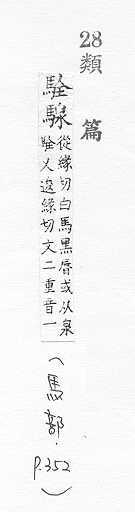 28
類篇
駩騡
從緣切白馬黑脣或从泉
駩又逡緣切文二重音一
(馬部.
P.352)